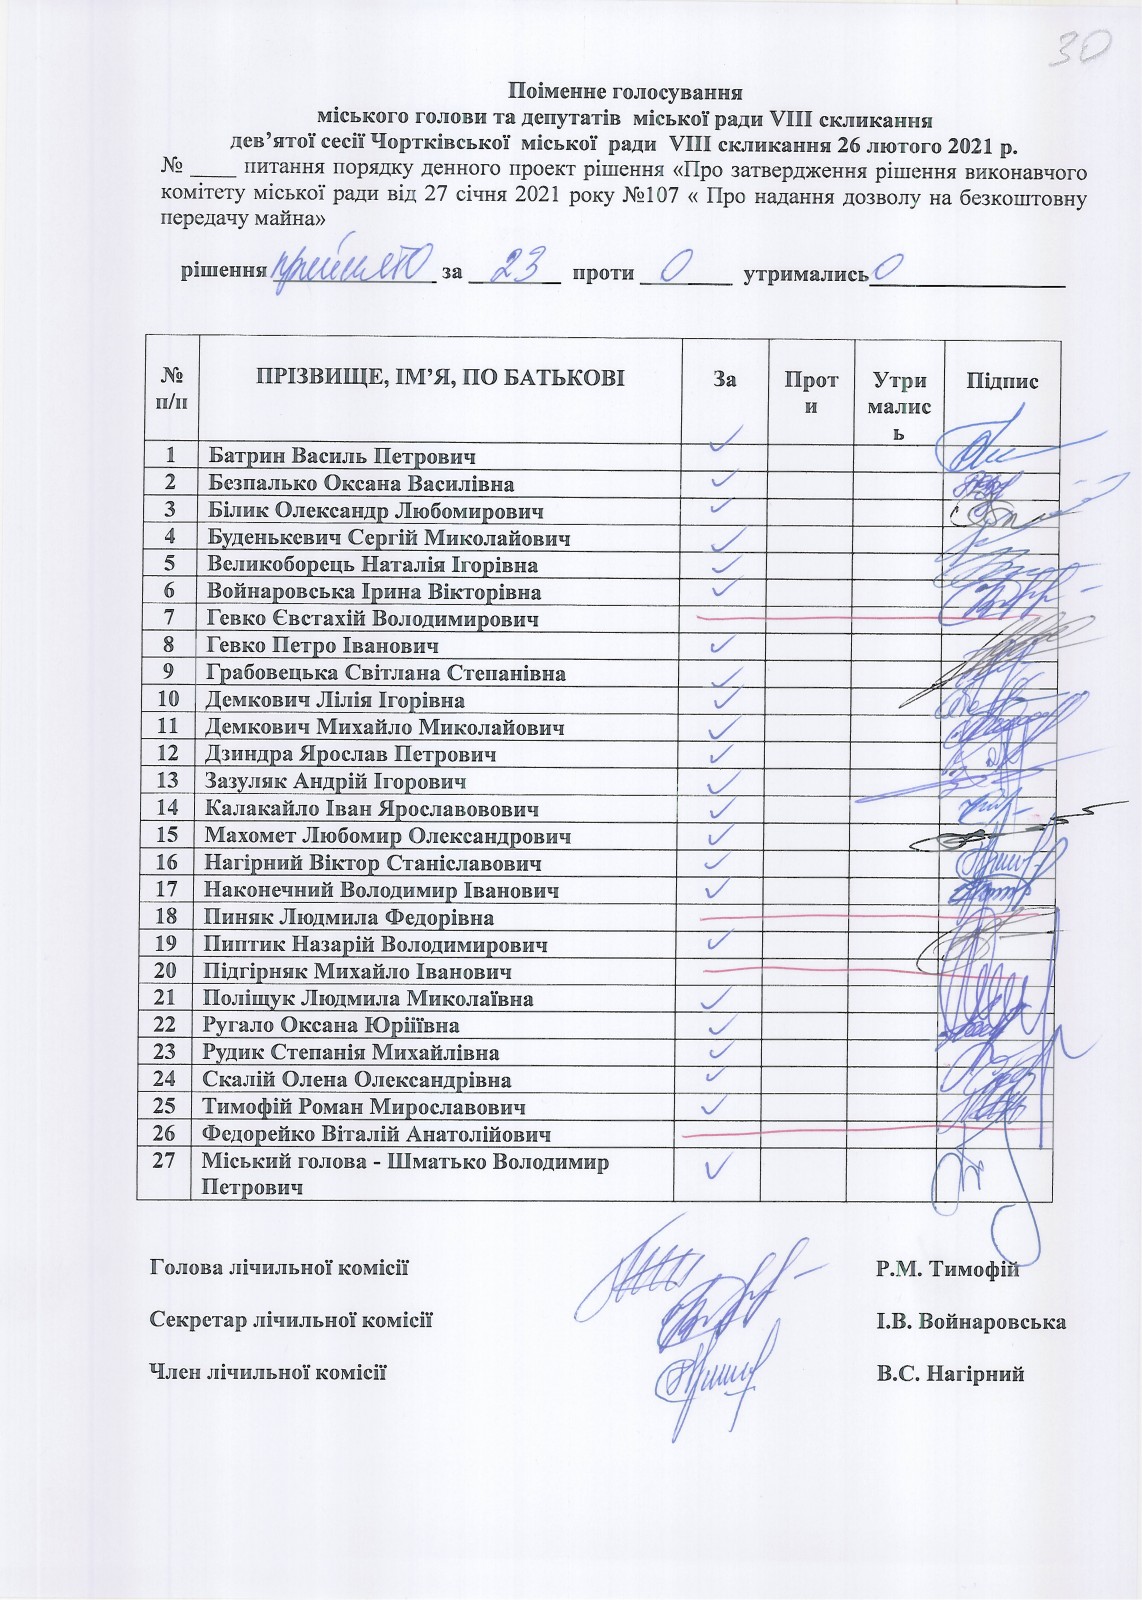 30
Поіменне голосування
міського голови та депутатів міської ради VIII скликання
дев’ятої сесії Чортківської міської ради VIII скликання 26 лютого 2021 р.
№ ____ питання порядку денного проект рішення «Про затвердження рішення виконавчого
комітету міської ради від 27 січня 2021 року №107 « Про надання дозволу на безкоштовну
передачу майна»
рішення прийнято за 23 проти 0 утримались 0
№ п/п ПРІЗВИЩЕ, ІМ’Я, ПО БАТЬКОВІ За Прот и Утри малис ь Підпис
1 Батрин Василь Петрович
2 Безпалько Оксана Василівна
3 Білик Олександр Любомирович
4 Буденькевич Сергій Миколайович
5 Великоборець Наталія Ігорівна
6 Войнаровська Ірина Вікторівна
7 Гевко Євстахій Володимирович
8 Гевко Петро Іванович
9 Грабовецька Світлана Степанівна
10 Демкович Лілія Ігорівна
11 Демкович Михайло Миколайович
12 Дзиндра Ярослав Петрович
13 Зазуляк Андрій Ігорович
14 Калакайло Іван Ярославовович
15 Махомет Любомир Олександрович
16 Нагірний Віктор Станіславович
17 Наконечний Володимир Іванович
18 Пиняк Людмила Федорівна
19 Пиптик Назарій Володимирович
20 Підгірняк Михайло Іванович
21 Поліщук Людмила Миколаївна
22 Ругало Оксана Юріїївна
23 Рудик Степанія Михайлівна
24 Скалій Олена Олександрівна
25 Тимофій Роман Мирославович
26 Федорейко Віталій Анатолійович
27 Міський голова - Шматько Володимир
Петрович
Голова лічильної комісії Р.М. Тимофій
Секретар лічильної комісії І.В. Войнаровська
Член лічильної комісії В.С. Нагірний